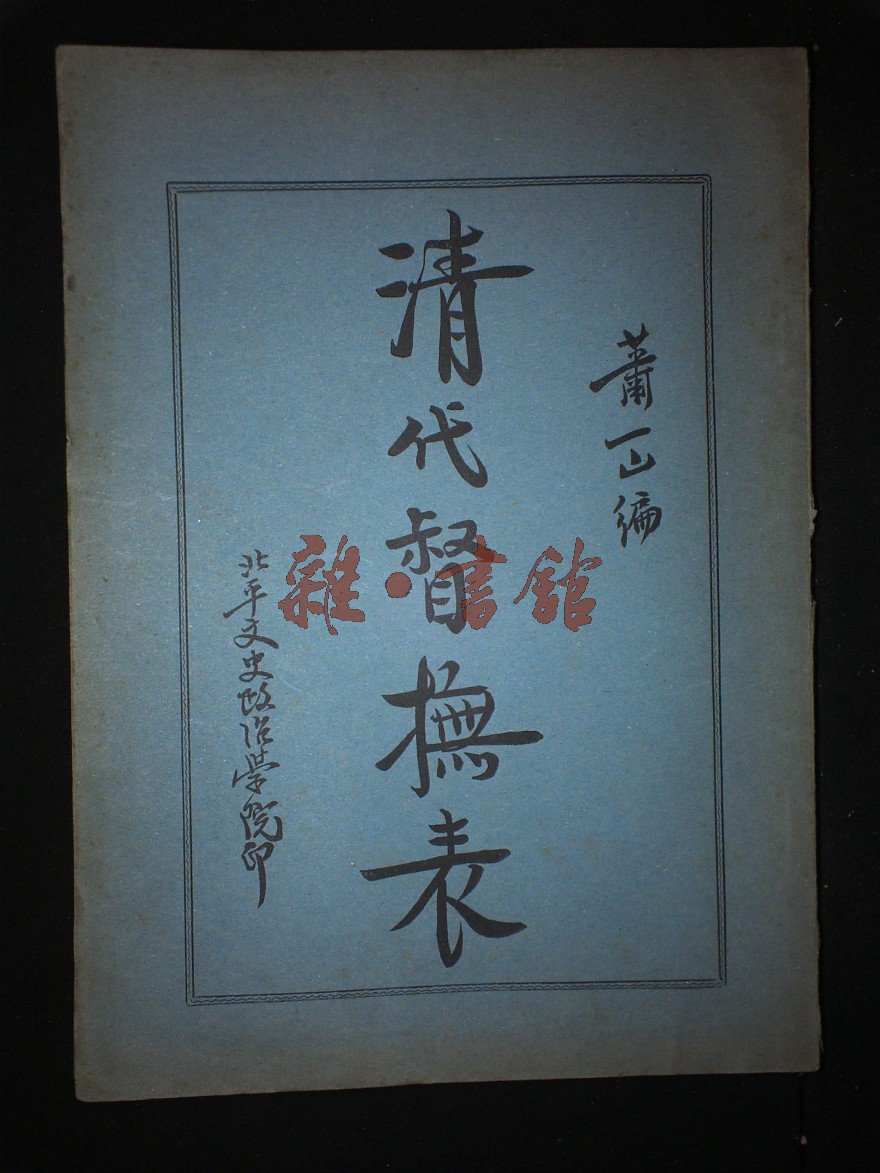 蕭一山編
清代督撫表
北平文史政治學院印
雜·書館